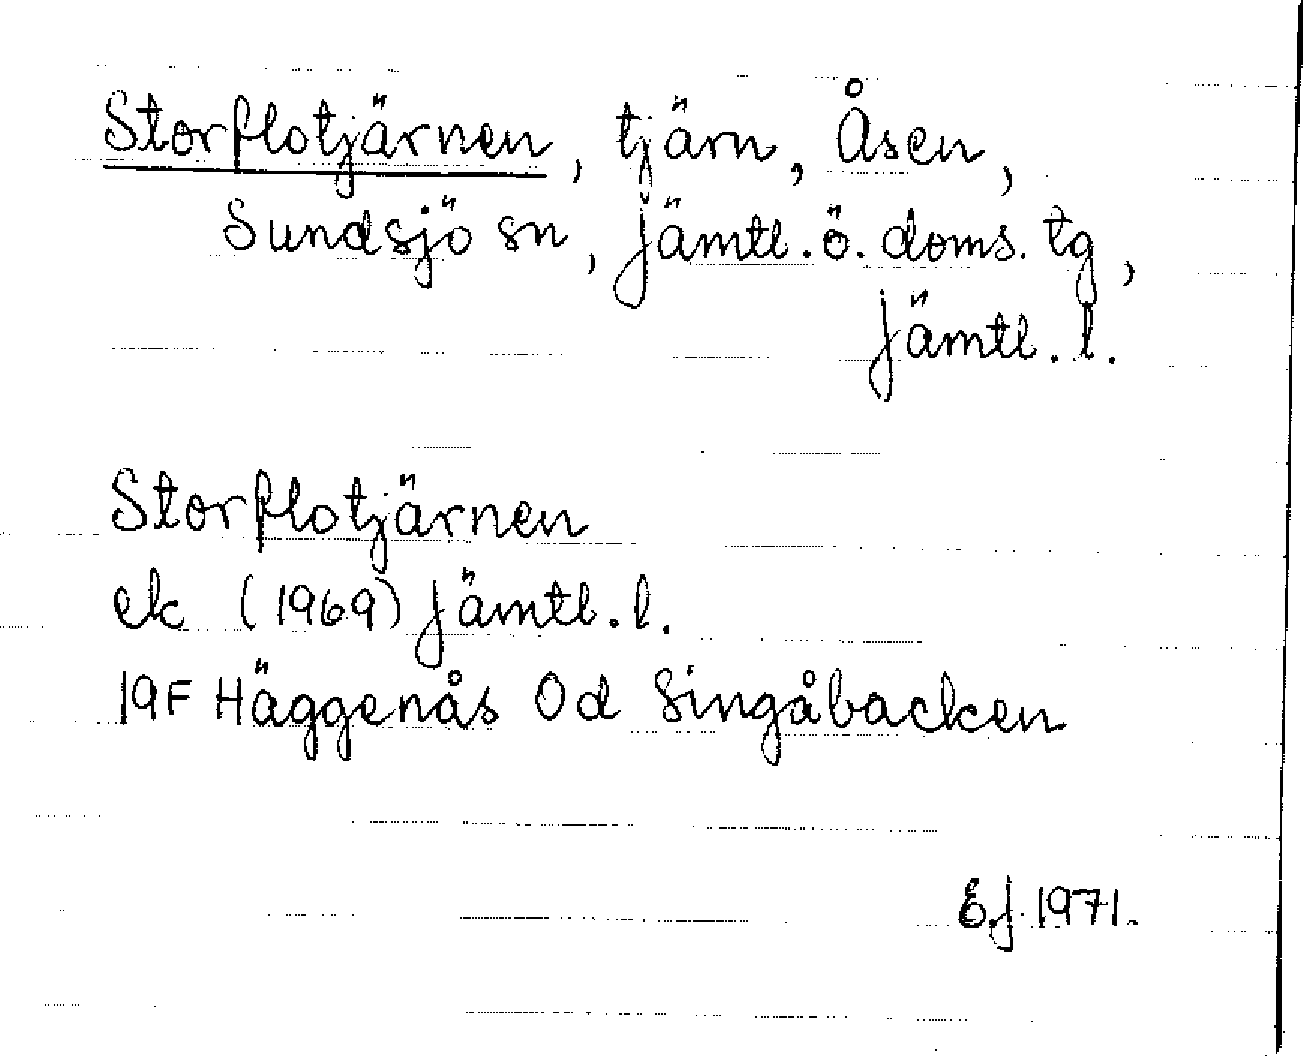 Storflotjärnen, tjärn, Åsen,
Sundsjö sn, Jämtl. ö. doms. tg,
Jämtl. l.
Storflotjärnen
ek (1969) Jämtl. l.
19F Häggenås 0d Singåbacken
E.J. 1971.